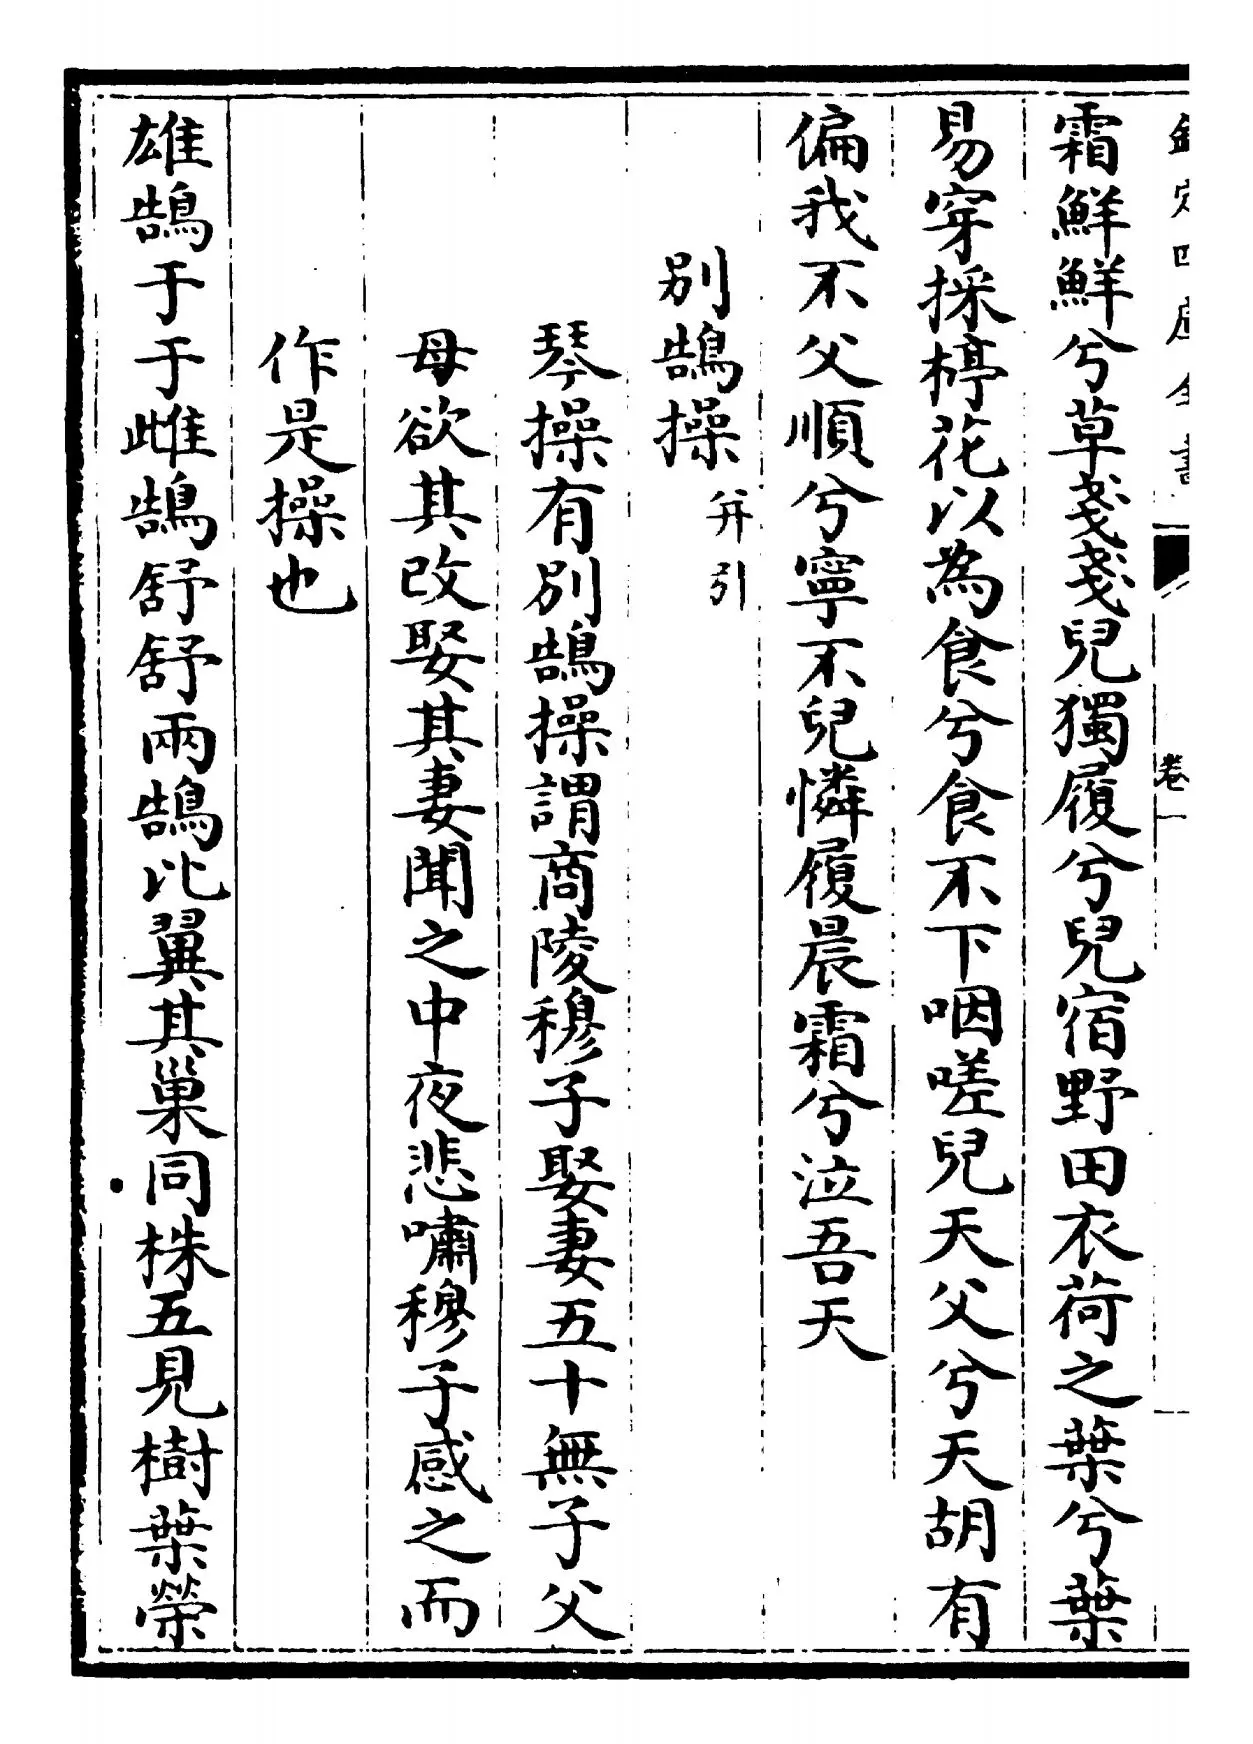 欽定四庫全書
卷一
霜鮮鮮兮草戔戔兒獨履兮兒宿野田衣荷之葉兮葉
易穿採楟花以為食兮食不下咽嗟兒天父兮天胡有
偏我不父順兮寧不兒憐履晨霜兮泣吾天
別鵠操并引
琴操有別鵠操謂商陵穆子娶妻五十無子父
母欲其改娶其妻聞之中夜悲嘯穆子感之而
作是操也
雄鵠于于雌鵠舒舒兩鵠比翼其巢同株五見樹葉榮